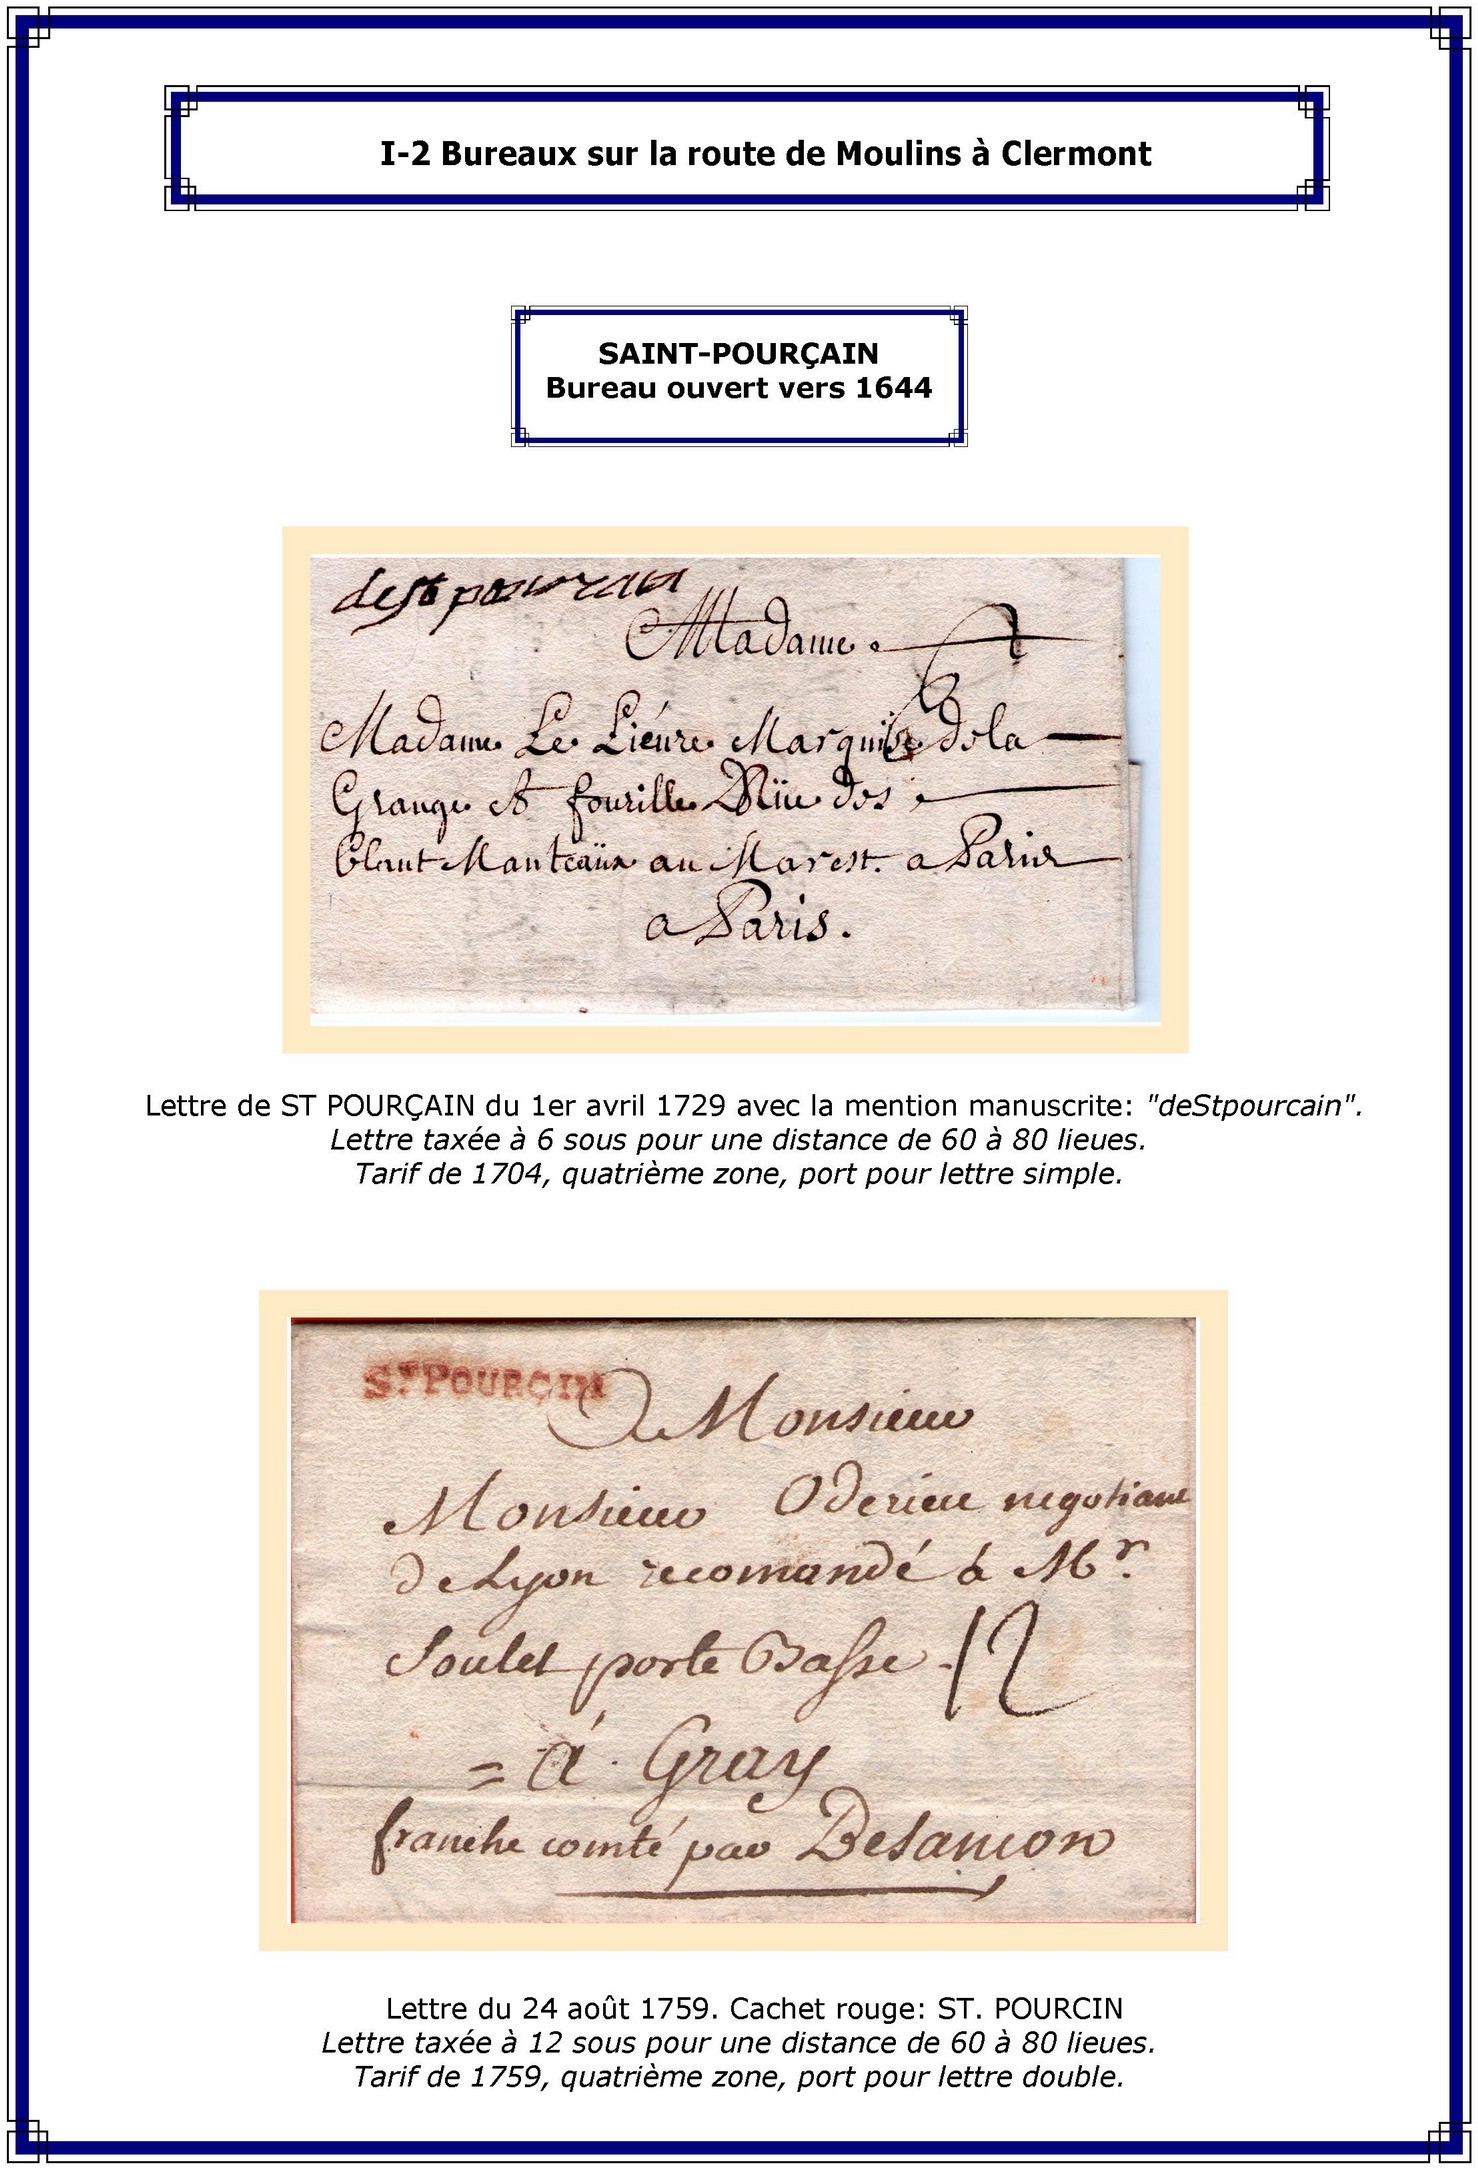 I-2 Bureaux sur la route de Moulins à Clermont
SAINT-POURÇAIN
Bureau ouvert vers 1644
deStpourcain
Madame
6
Madame Le Liévre Marquise de la
Grange et fourille Rüe des
blant Manteaux au Marest. a Paris
a Paris.
Lettre de ST POURÇAIN du 1er avril 1729 avec la mention manuscrite: "deStpourcain".
Lettre taxée à 6 sous pour une distance de 60 à 80 lieues.
Tarif de 1704, quatrième zone, port pour lettre simple.
ST POURÇIN
A Monsieur
Monsieur Oderieu negotiant
de Lyon recomandé à Mr.
Soulet porte Basse 12
= à Gray
franche comté par Besançon
Lettre du 24 août 1759. Cachet rouge: ST. POURCIN
Lettre taxée à 12 sous pour une distance de 60 à 80 lieues.
Tarif de 1759, quatrième zone, port pour lettre double.